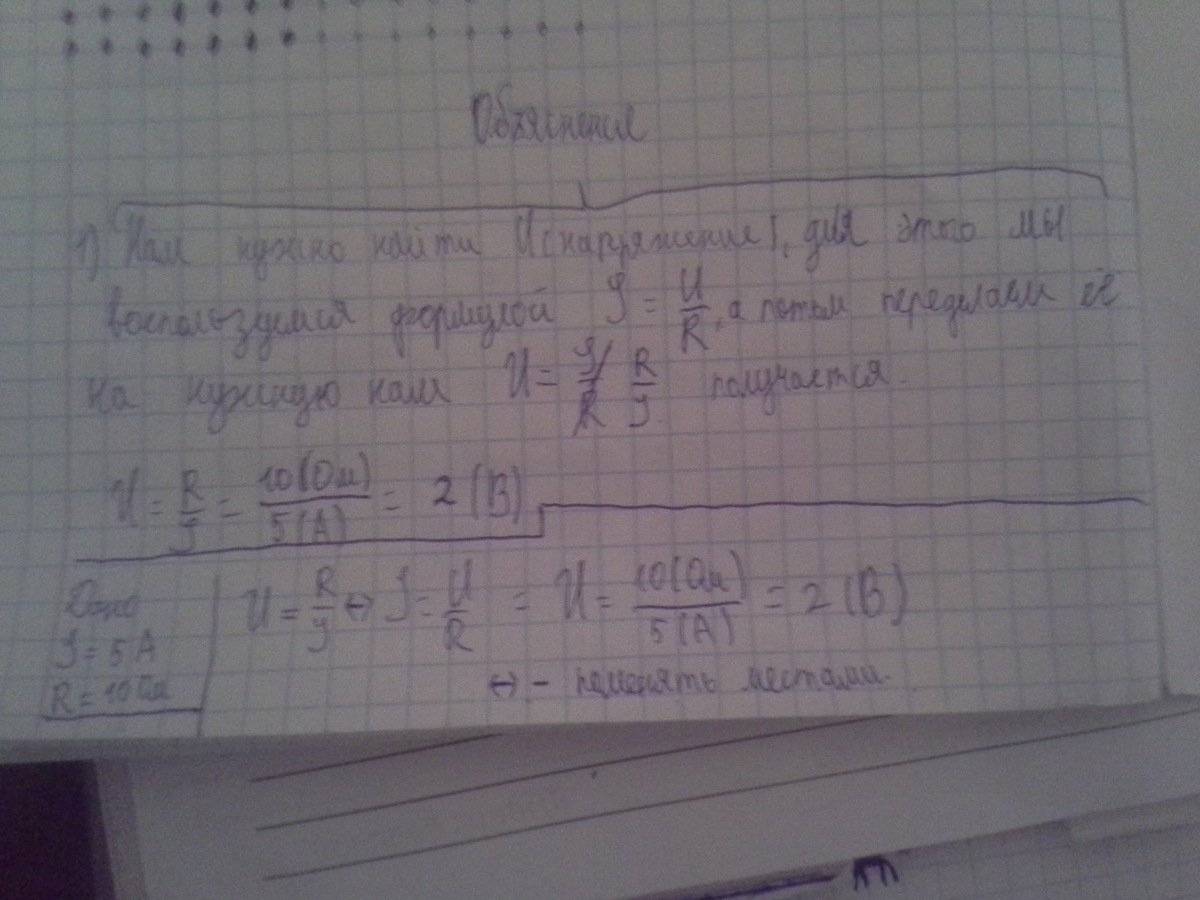 Объяснение
1) Нам нужно найти U(напряжение), для этого мы
воспользуемся формулой J = U/R, а потом переделаем её
на нужную нам U = J/R R/J получается.
U = R/J = 10(Ом)/5(А) = 2 (В)
Дано
J = 5 А
R = 10 Ом
U = R/J ↔ J = U/R = U = 10(Ом)/5(А) = 2 (В)
↔ - поменять местами.